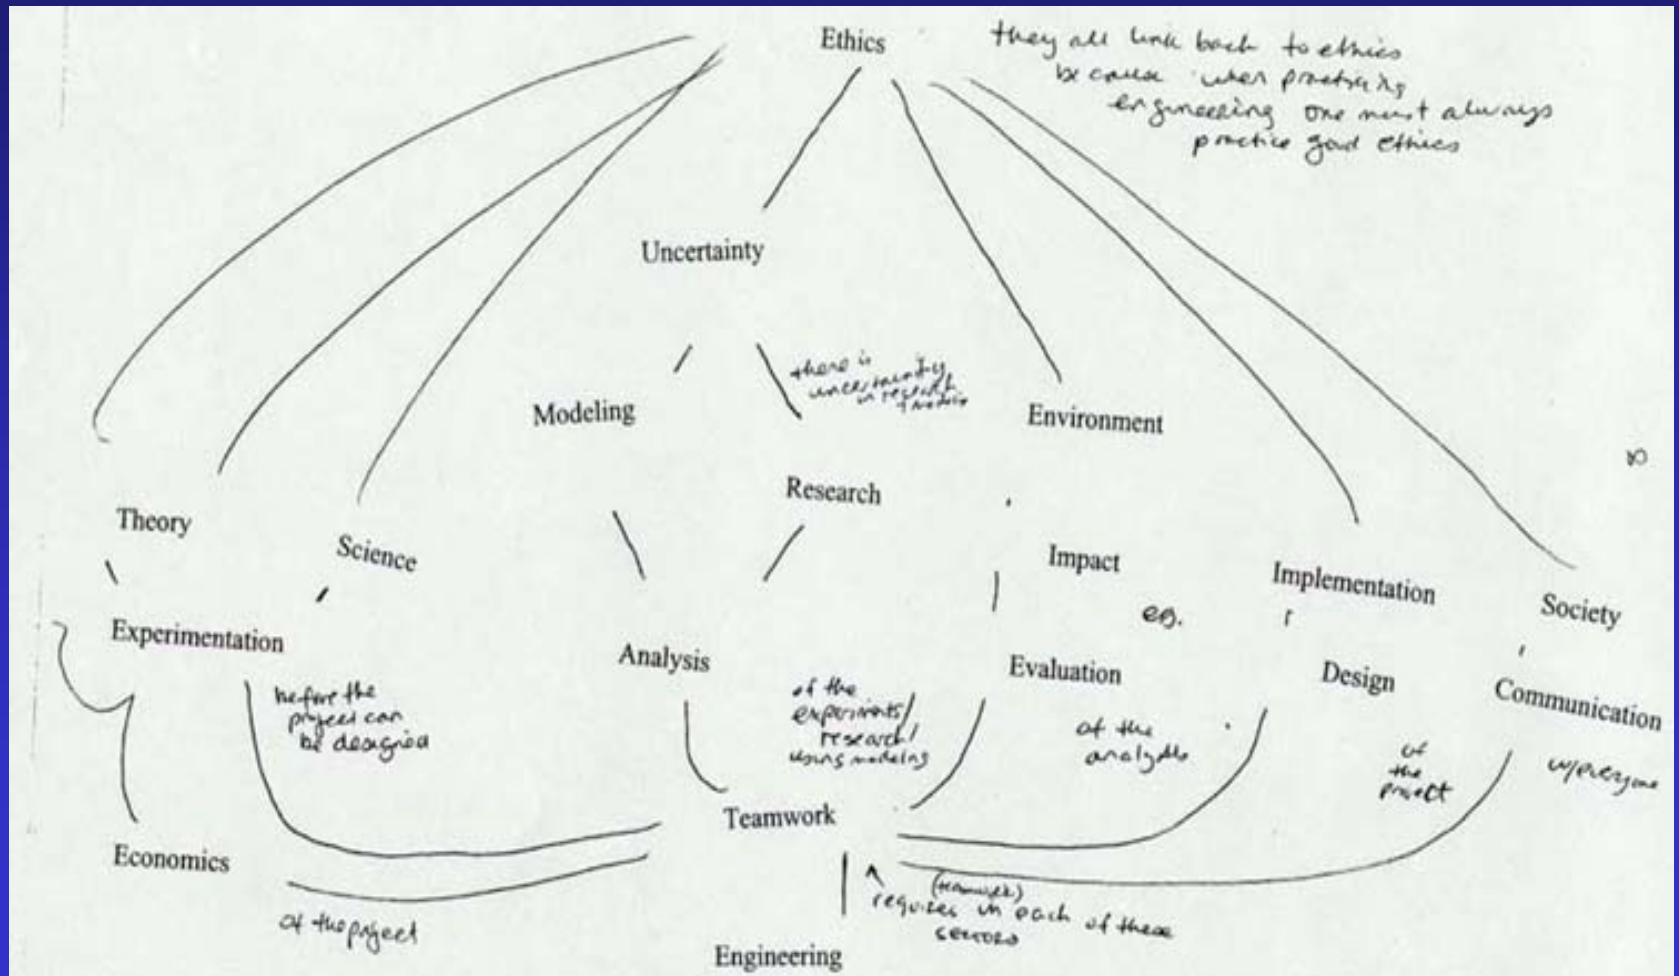 Ethics
they all link back to ethics
because when practicing
engineering one must always
practice good ethics
Uncertainty
there is
uncertainty
in research
Modeling
Environment
Research
Theory
Science
Impact
eg.
Implementation
Society
Experimentation
before the
project can
be designed
Analysis
of the
experiments/
research/
using modeling
Evaluation
of the
analysis
Design
of
the
project
Communication
w/everyone
Teamwork
Economics
of the project
(teamwork)
requires in each of these
sectors
Engineering